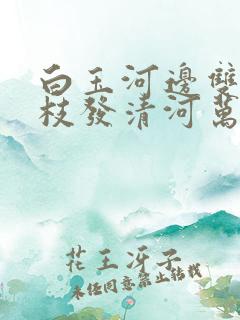 白玉河邊雙
枝發清河萬
花王冴子
未经同意禁止转载